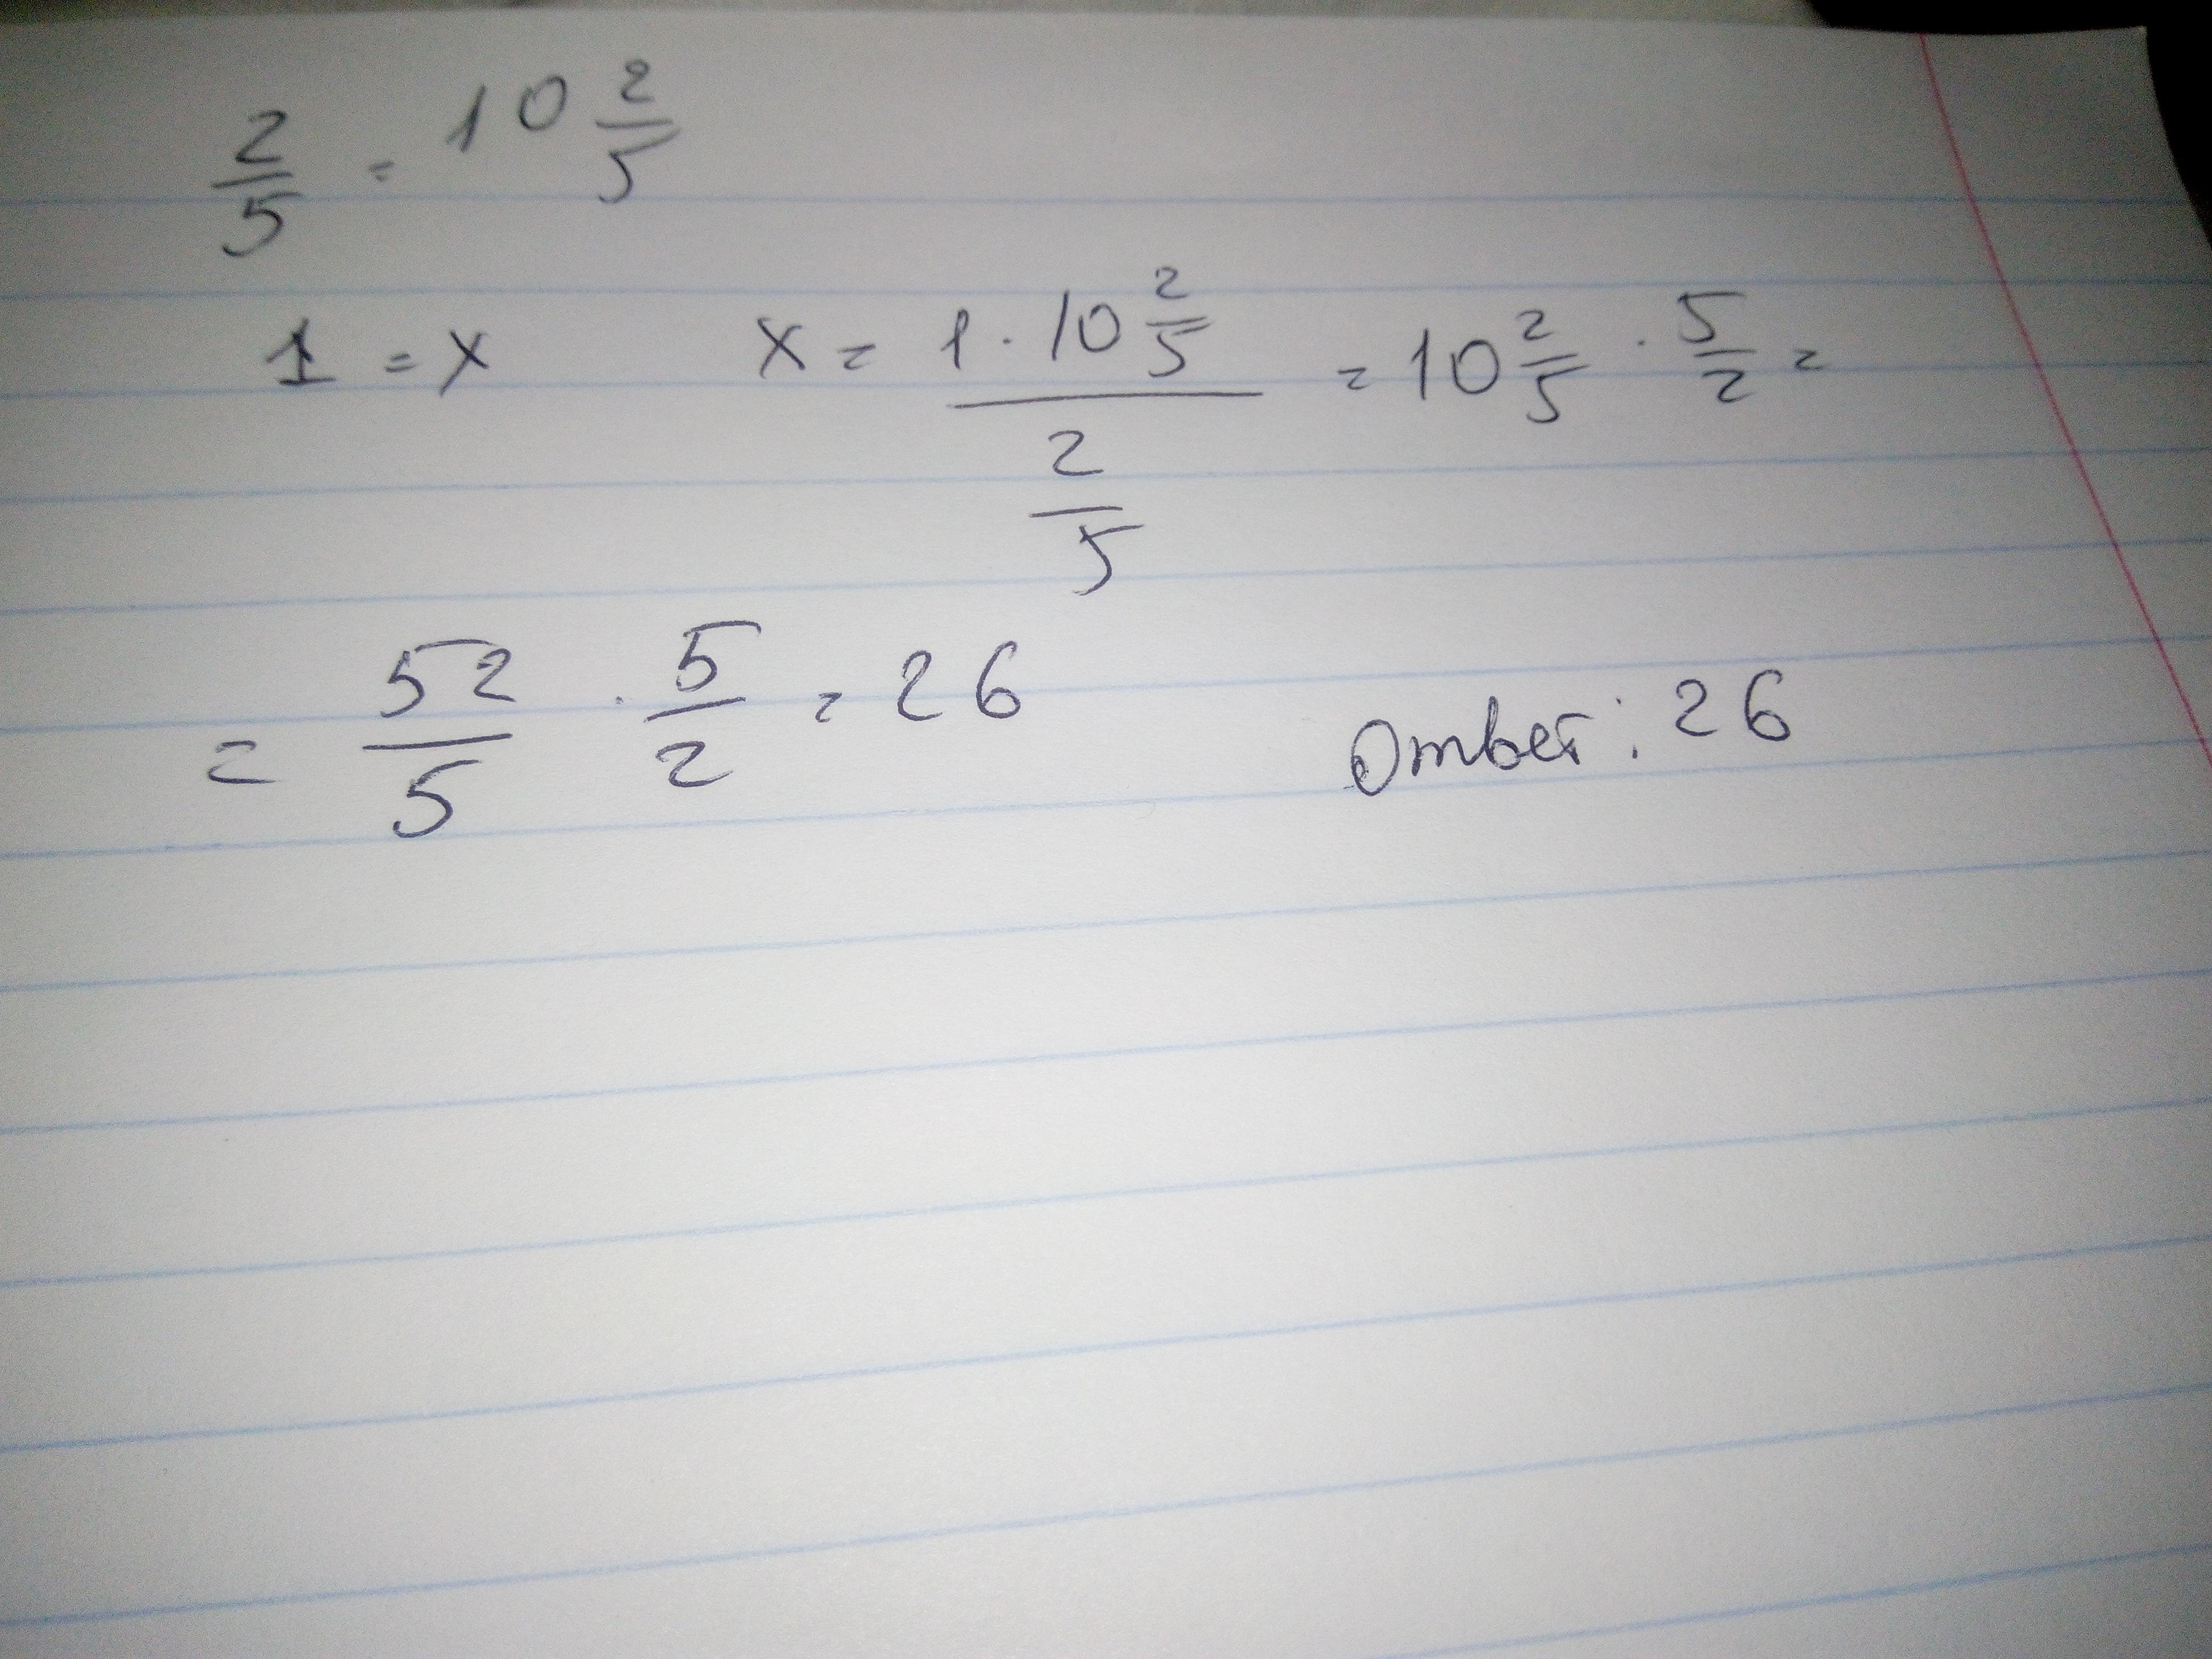 2/5 = 10 2/5
1 = x    x = (1 · 10 2/5)/(2/5) = 10 2/5 · 5/2 =
= 52/5 · 5/2 = 26    Ответ: 26